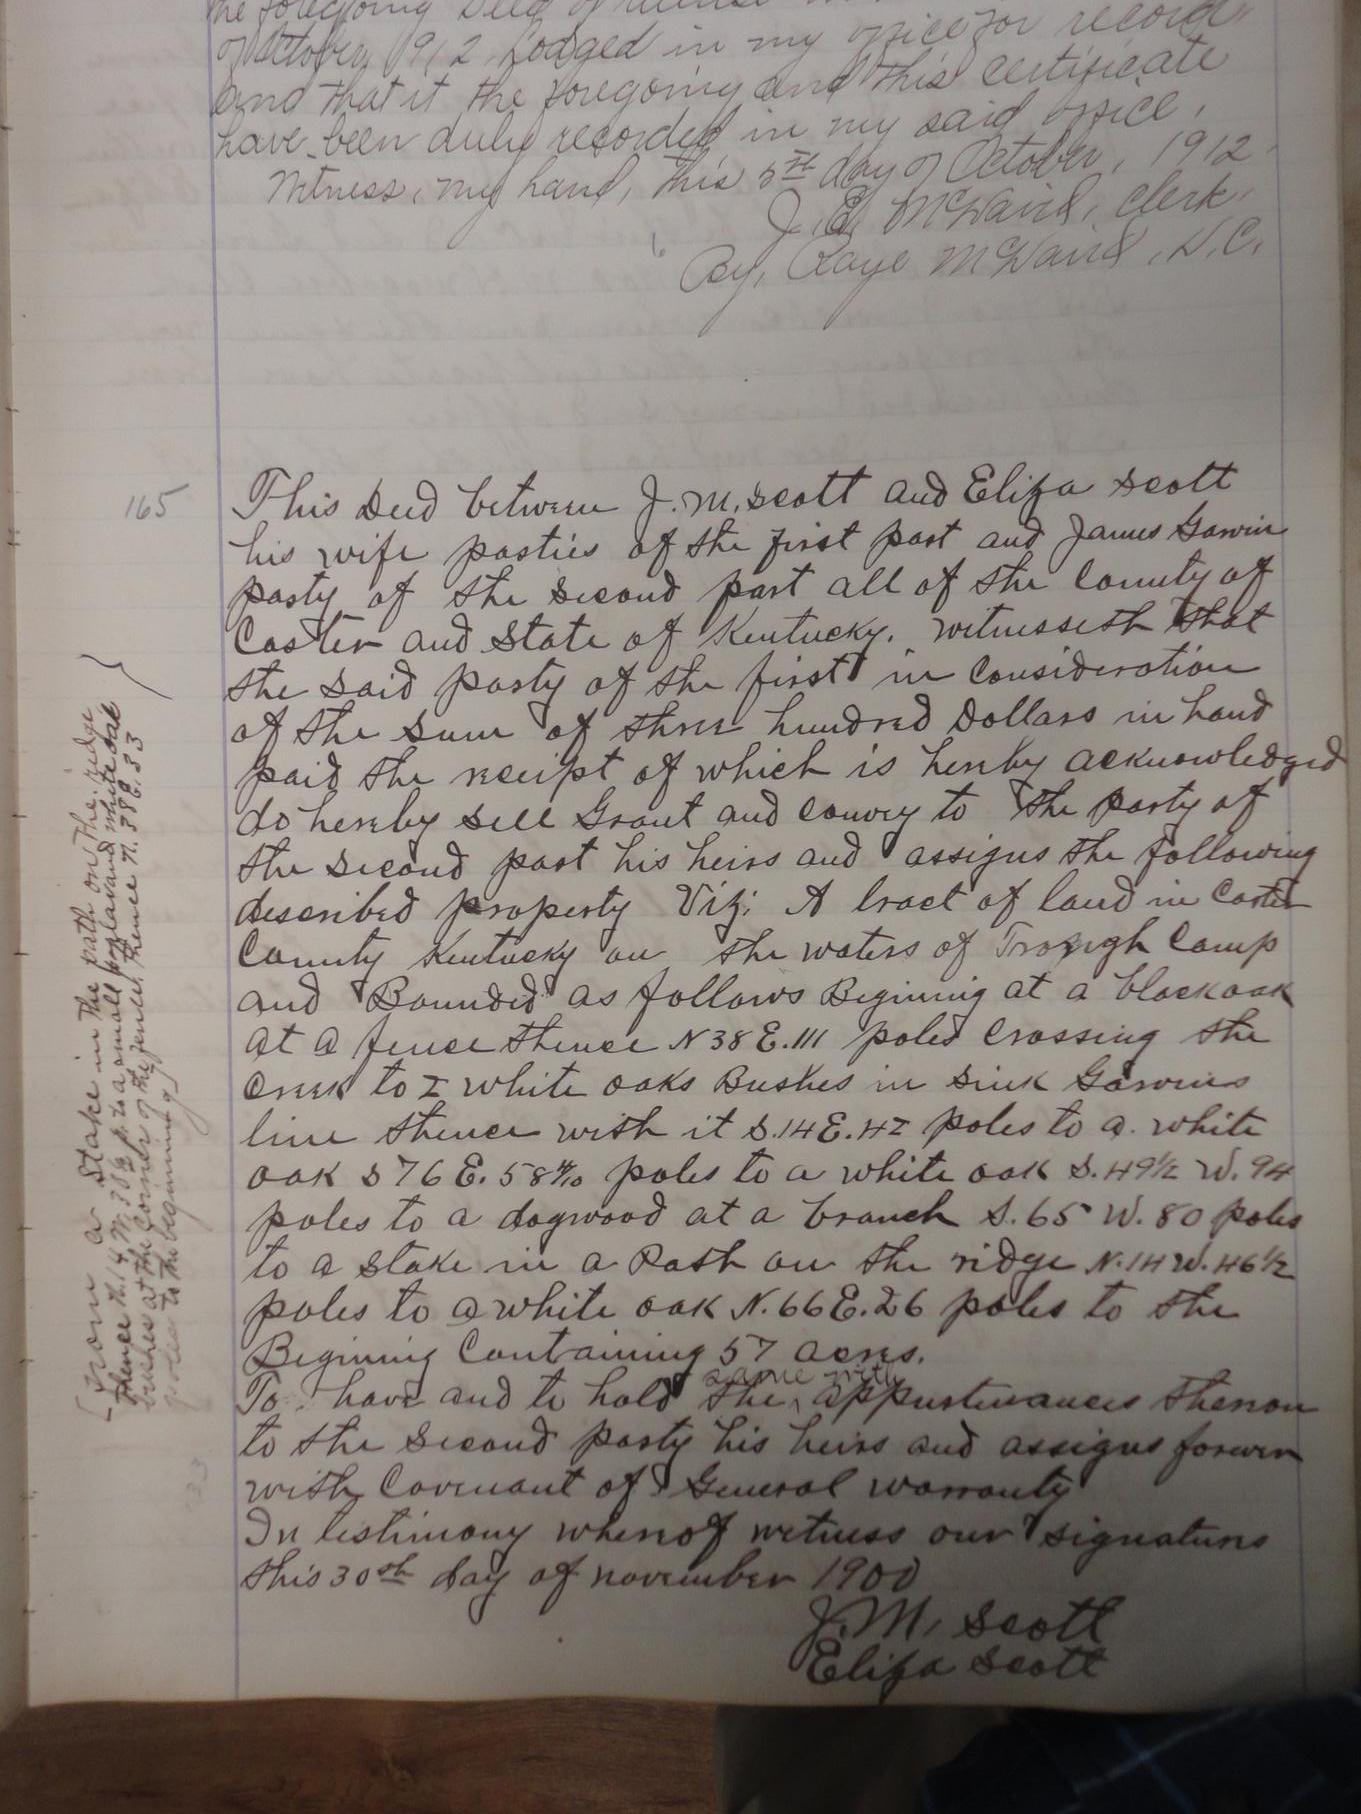 the foregoing Deed of
of October 1912, Lodged in my office for record
and that it the foregoing and this certificate
have been duly recorded in my said office.
Witness, my hand, this 5th day of October, 1912.
J. E. McDavid, Clerk.
By, Raye McDavid, D.C.
165
This Deed between J. M. Scott and Eliza Scott
his wife parties of the first part and James Garvin
party of the second part all of the County of
Carter and State of Kentucky. Witnesseth that
the said party of the first in consideration
of the sum of three hundred Dollars in hand
paid the receipt of which is hereby acknowledged
do hereby sell Grant and convey to the party of
the second part his heirs and assigns the following
described property Viz: A tract of land in Carter
County Kentucky on the waters of Trough Camp
and Bounded as follows Beginning at a blackoak
at a fence thence N 38 E. 111 poles crossing the
creek to 2 white oaks Bushes in Garvins
line thence with it S. 14 E. 42 poles to a white
oak S 76 E. 58 4/10 poles to a white oak S. 49 1/2 W. 94
poles to a dogwood at a branch S. 65 W. 80 poles
to a stake in a Path on the ridge N. 14 W. 46 1/2
poles to a white oak N. 66 E. 26 poles to the
Begining Containing 57 acres.
same with
To have and to hold the appurtenances thereon
to the second party his heirs and assigns forever
with Covenant of General warranty
In testimony whereof witness our signatures
this 30th day of november 1900
J. M. Scott
Eliza Scott
from a stake in the path on the ridge
thence N. 14 W. 38 1/2 p. to a small poplar and white oak
bushes at the corner of the fence, thence N. 38 E. 33
poles to the beginning